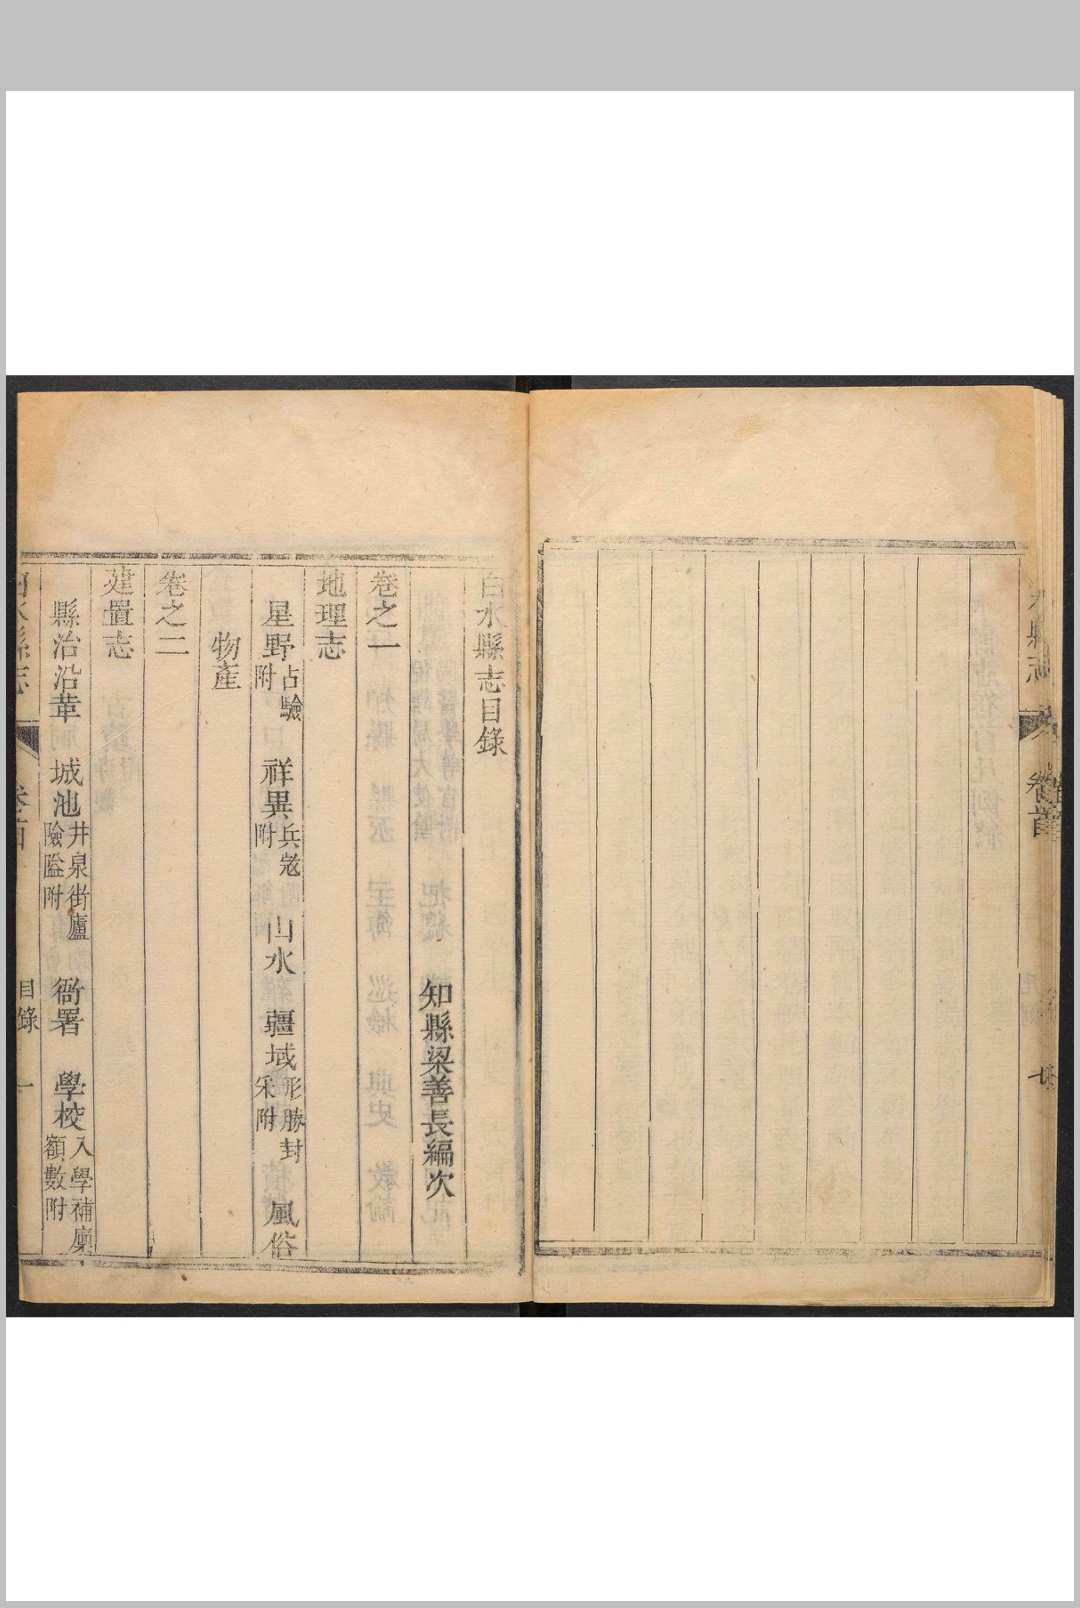 水縣志
卷首
白水縣志目錄
知縣梁善長編次
卷之一
地理志
星野占驗附 祥異兵寇附 山水 疆域形勝封采附 風俗
物產
卷之二
建置志
縣治沿革 城池井泉街廬險隘附 衙署 學校入學補廩額數附
白水縣志 卷首 目錄 一